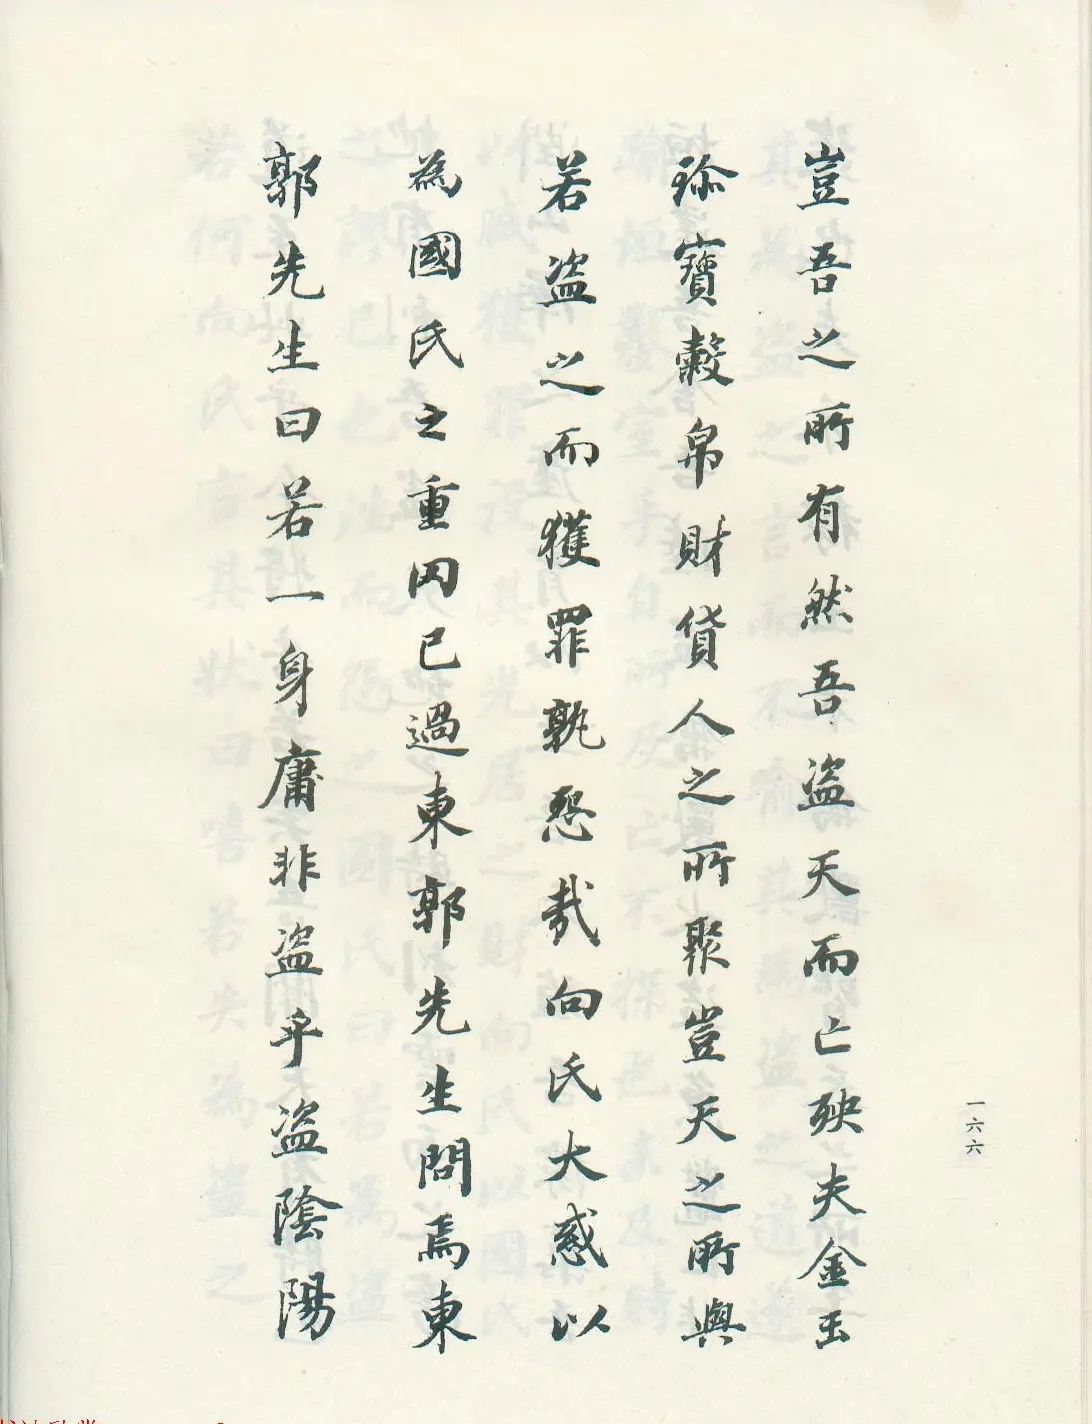 豈吾之所有然吾盗天而亡殃夫金玉
珎寶穀帛財貨人之所聚豈天之所與
若盗之而獲罪孰怨㦲向氏大惑以
為國氏之重囚已過東郭先生問焉東
郭先生曰若一身庸非盗乎盗陰陽
一六六